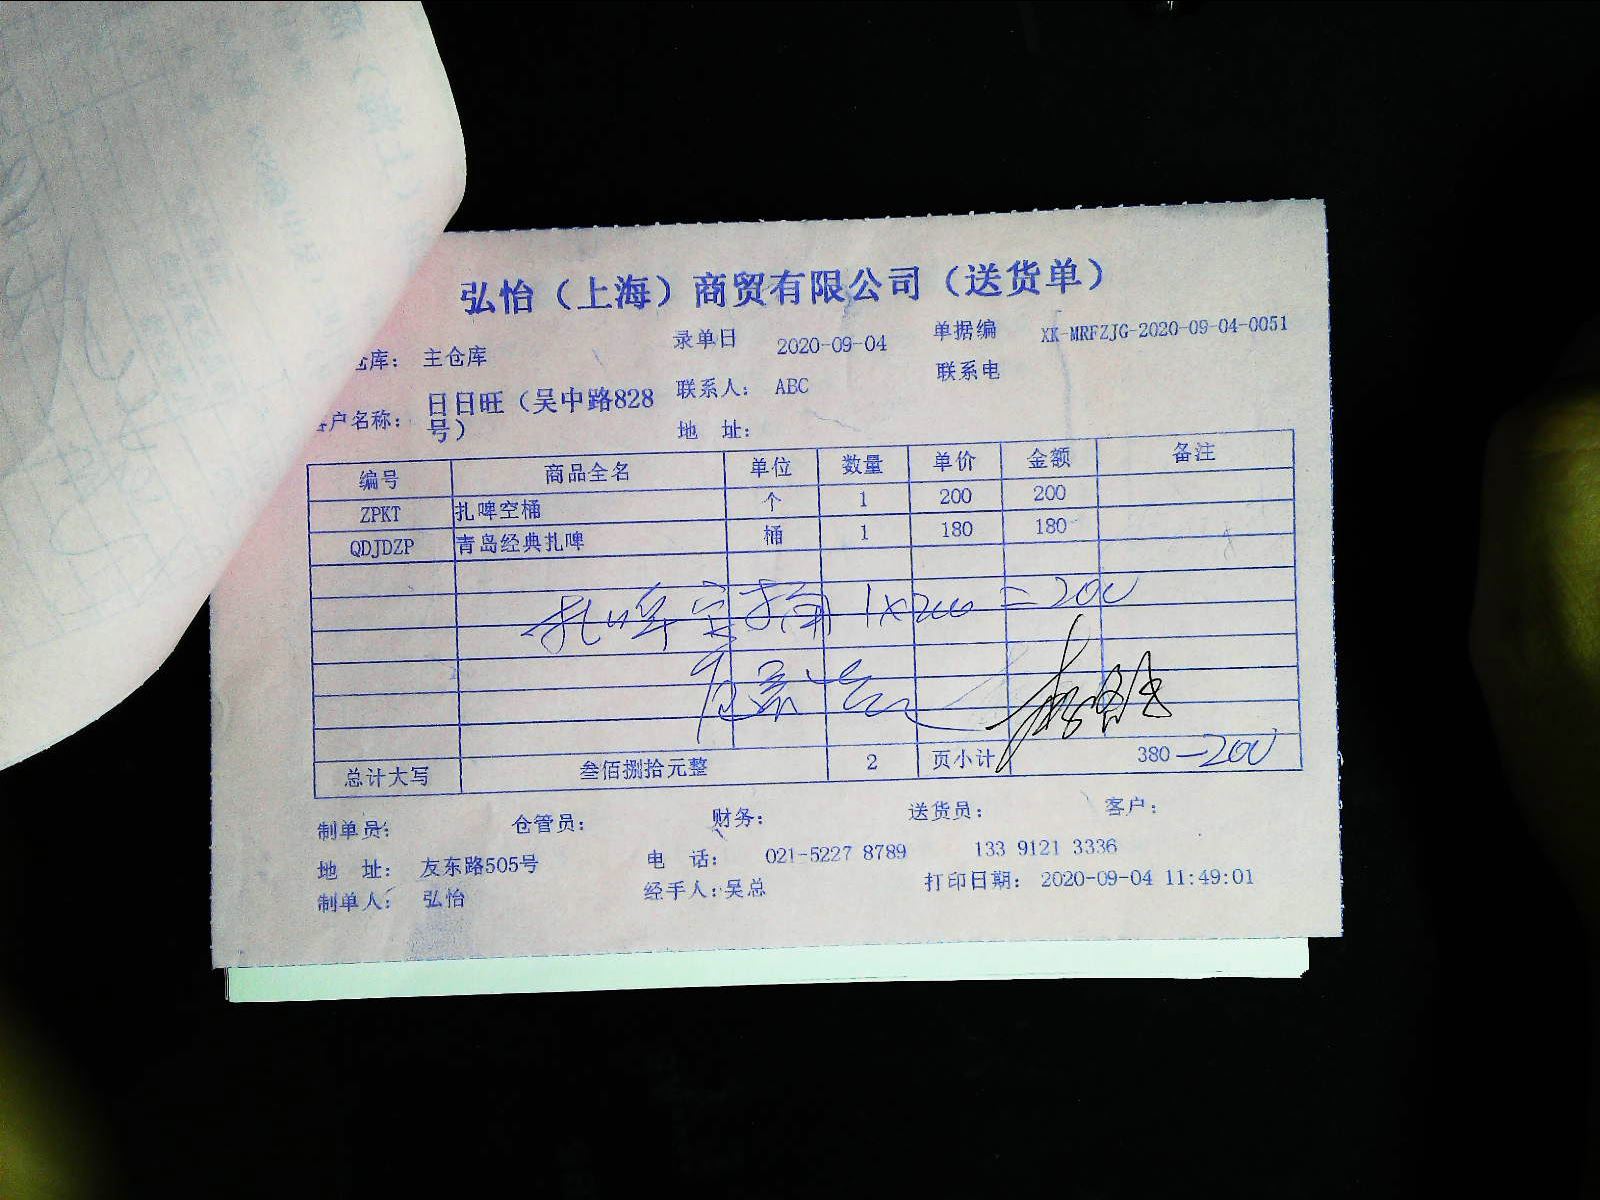 弘怡（上海）商贸有限公司（送货单）
仓库： 主仓库 录单日 2020-09-04 单据编 XK-MRFZJG-2020-09-04-0051
客户名称： 日日旺（吴中路828号） 联系人： ABC 联系电
地 址：
编号 商品全名 单位 数量 单价 金额 备注
ZPKT 扎啤空桶 个 1 200 200
QDJDZP 青岛经典扎啤 桶 1 180 180
扎啤空桶 1×200 = 200
总计大写 叁佰捌拾元整 2 页小计 380 -200
制单员： 仓管员： 财务： 送货员： 客户：
地 址： 友东路505号 电 话： 021-5227 8789 133 9121 3336
制单人： 弘怡 经手人：吴总 打印日期： 2020-09-04 11:49:01